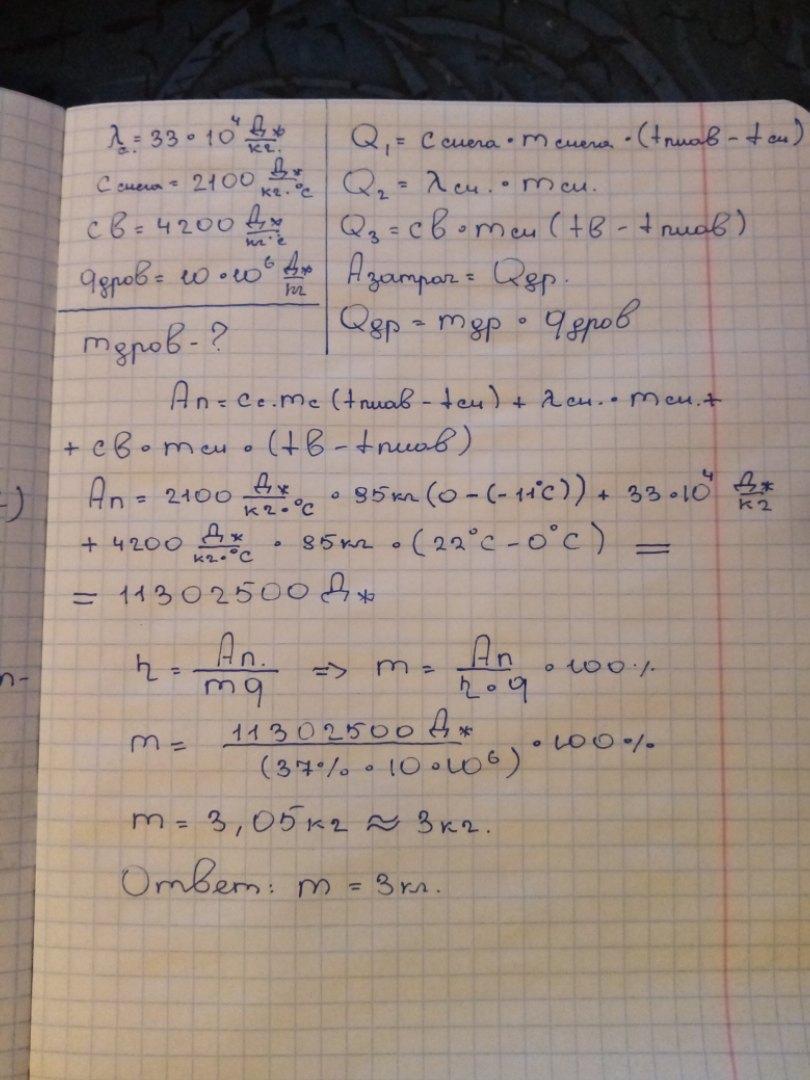 λс. = 33 • 10⁴ Дж/кг.
c снега = 2100 Дж/кг.•°C
cв = 4200 Дж/кг•°c
qдров = 10 • 10⁶ Дж/кг
mдров - ?
Q₁ = cснега • mснега • (tплав - tсн)
Q₂ = λсн. • mсн.
Q₃ = cв • mсн (tв - tплав)
Aзатрач = Qдр.
Qдр = mдр • qдров
Aп = cс.mс (tплав - tсн) + λсн. • mсн. +
+ cв • mсн • (tв - tплав)
Aп = 2100 Дж/кг.•°C • 35кг (0 - (-11°C)) + 33•10⁴ Дж/кг
+ 4200 Дж/кг.•°C • 35кг • (22°C - 0°C) =
= 11302500 Дж
η = Aп./mq => m = Aп/η•q • 100%
m = 11302500 Дж/(37% • 10 • 10⁶) • 100%
m = 3,05кг ≈ 3кг.
Ответ: m = 3кг.